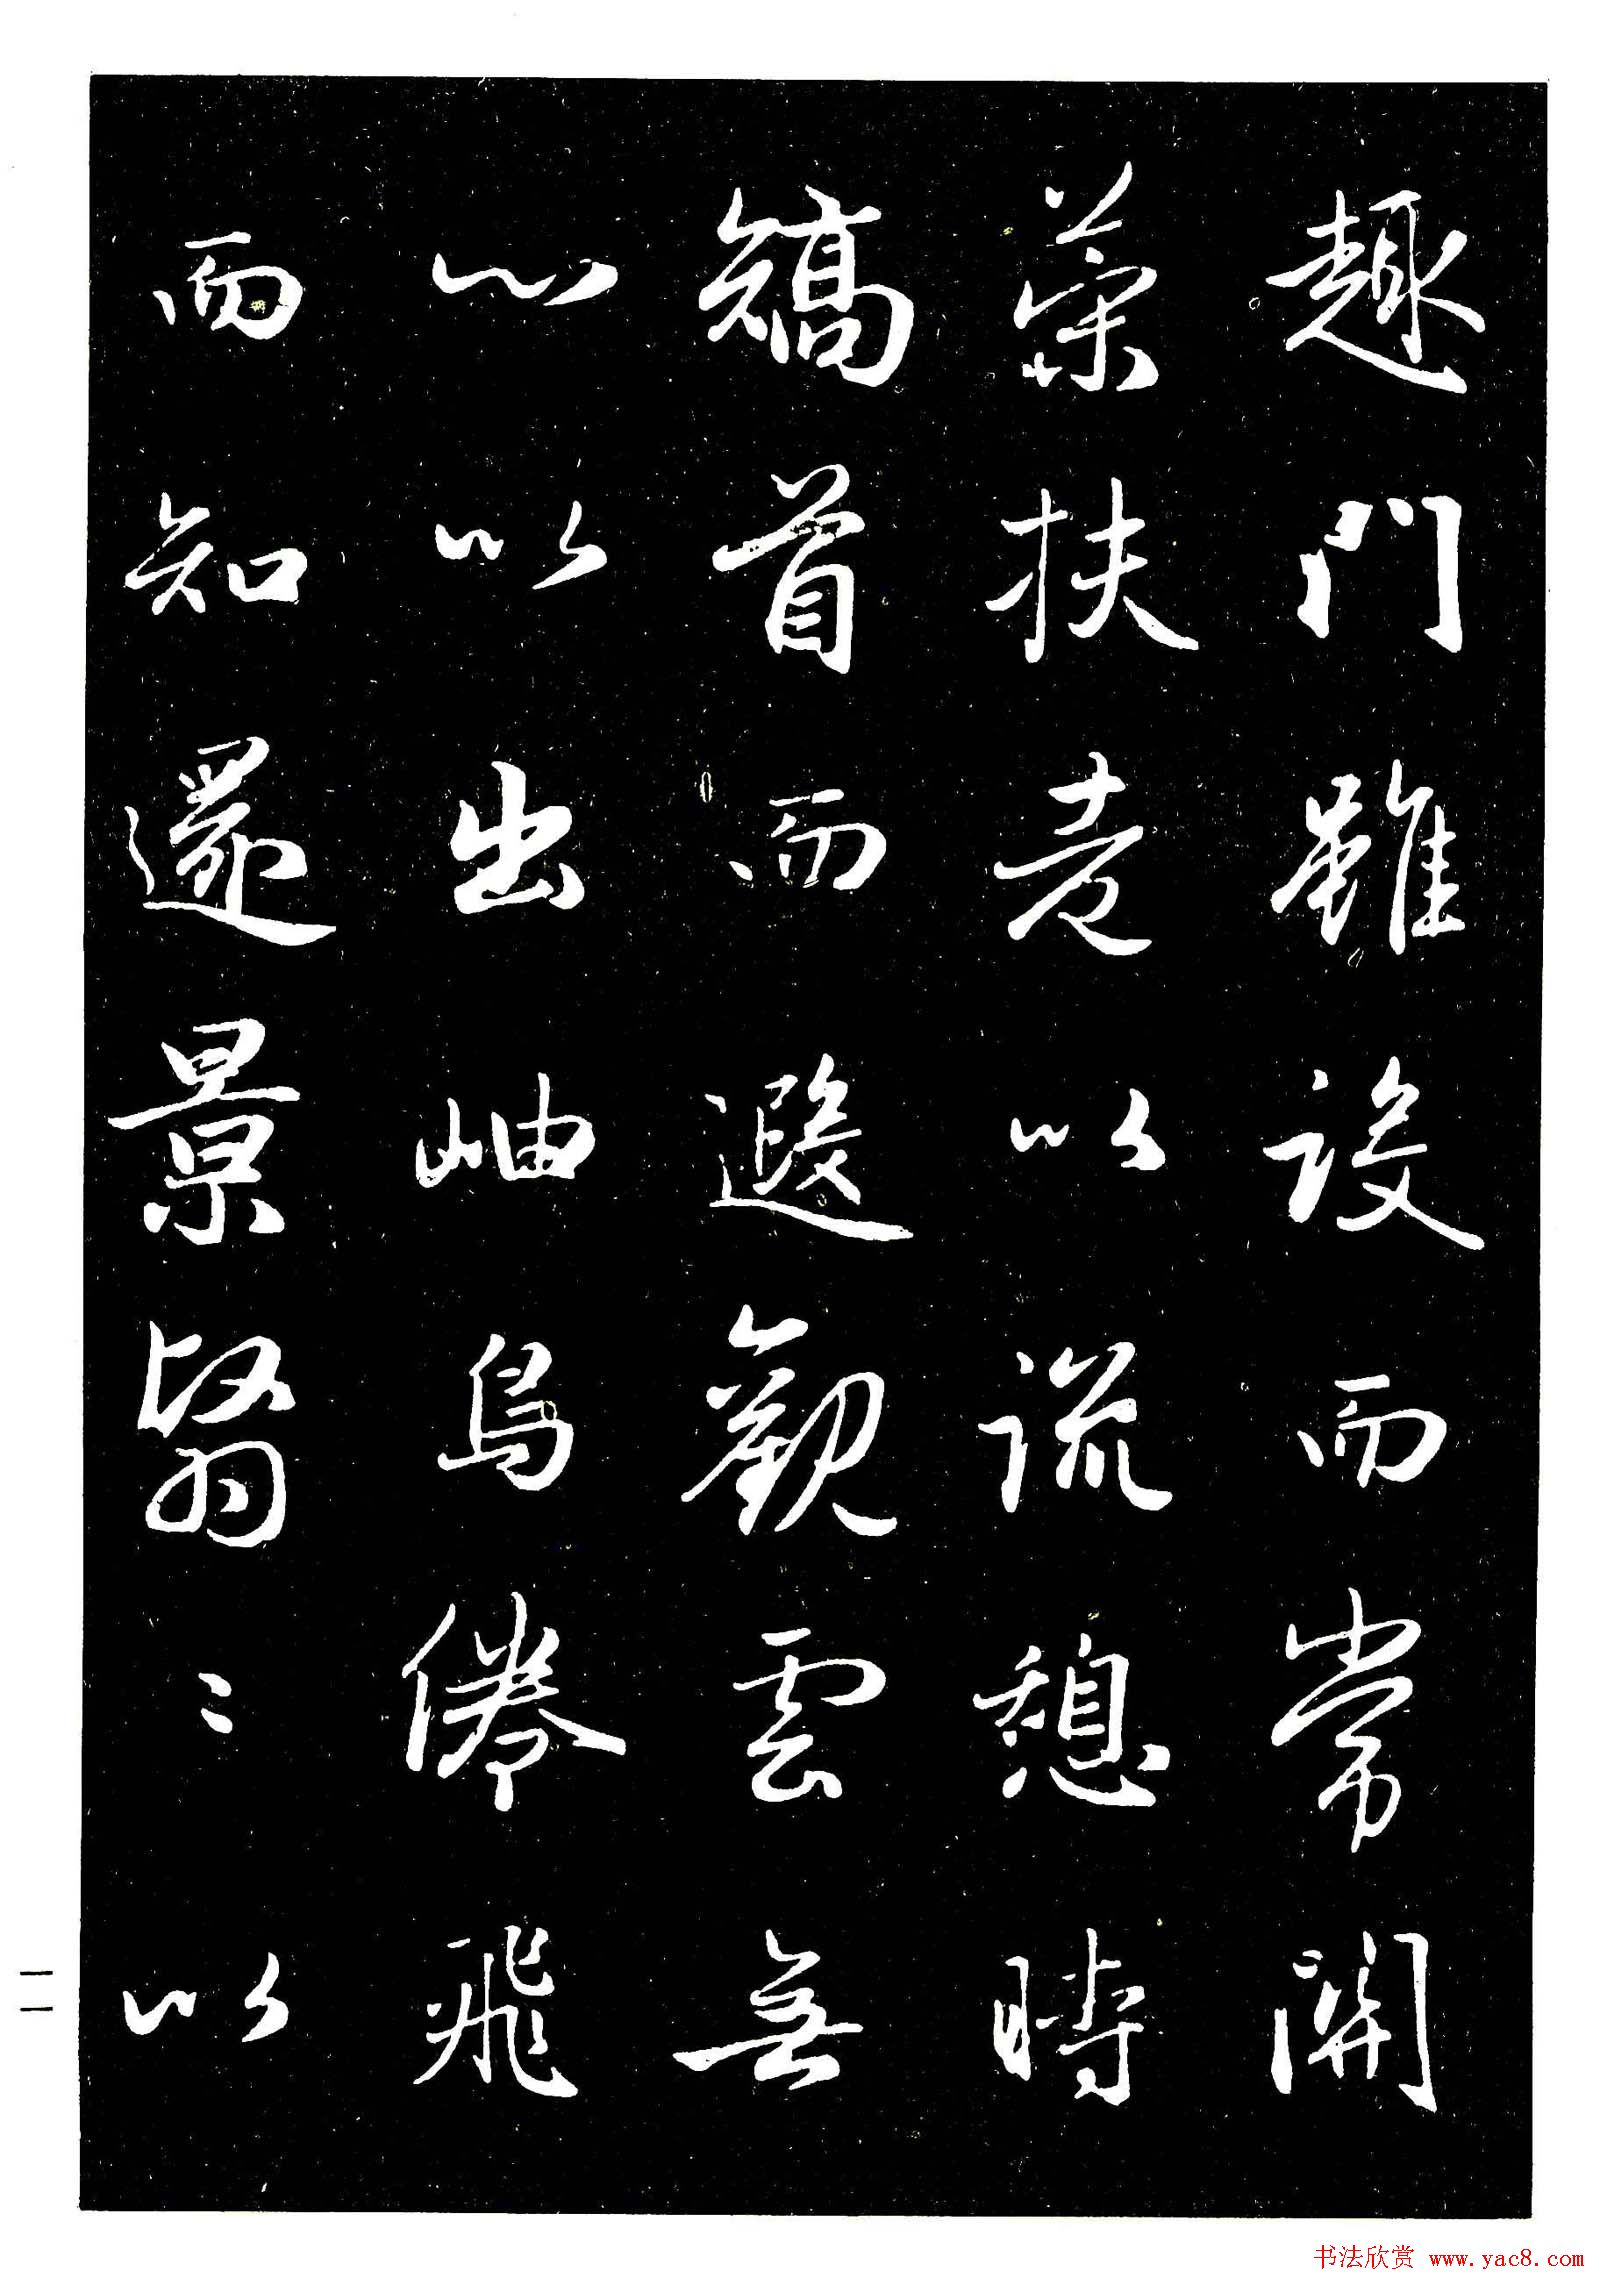 趣門雖設而常關
策扶老以流憩時
矯首而遐觀雲無
心以出岫鳥倦飛
而知還景翳〻以
一一
书法欣赏 www.yac8.com